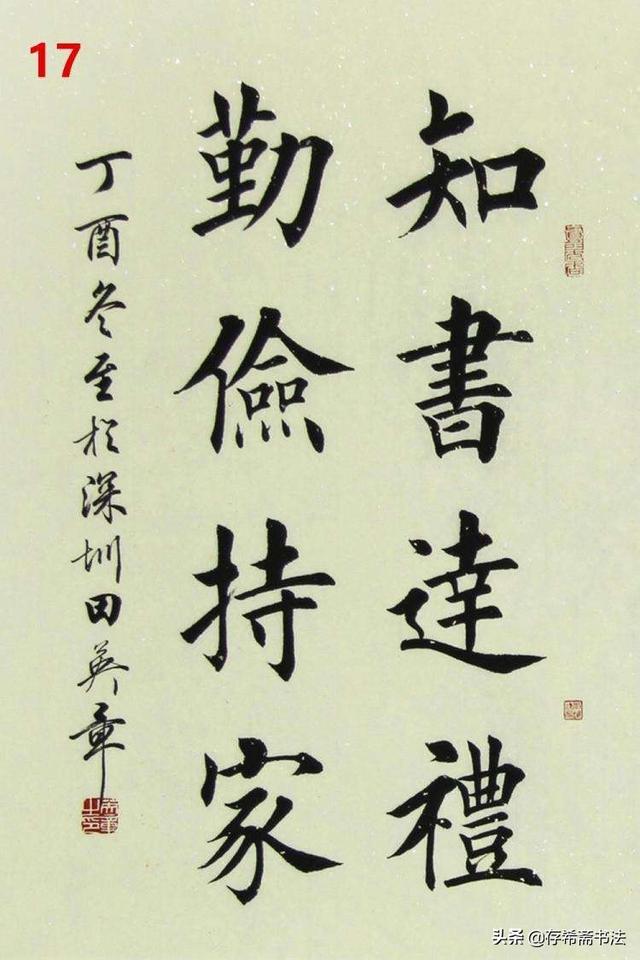 17
知書達禮
勤儉持家
丁酉冬至於深圳田英章
头条 @存希斋书法